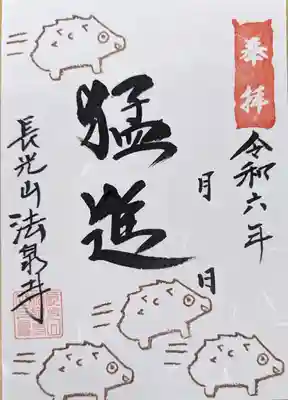 奉拝
令和六年
月 日
猛進
長光山法泉寺